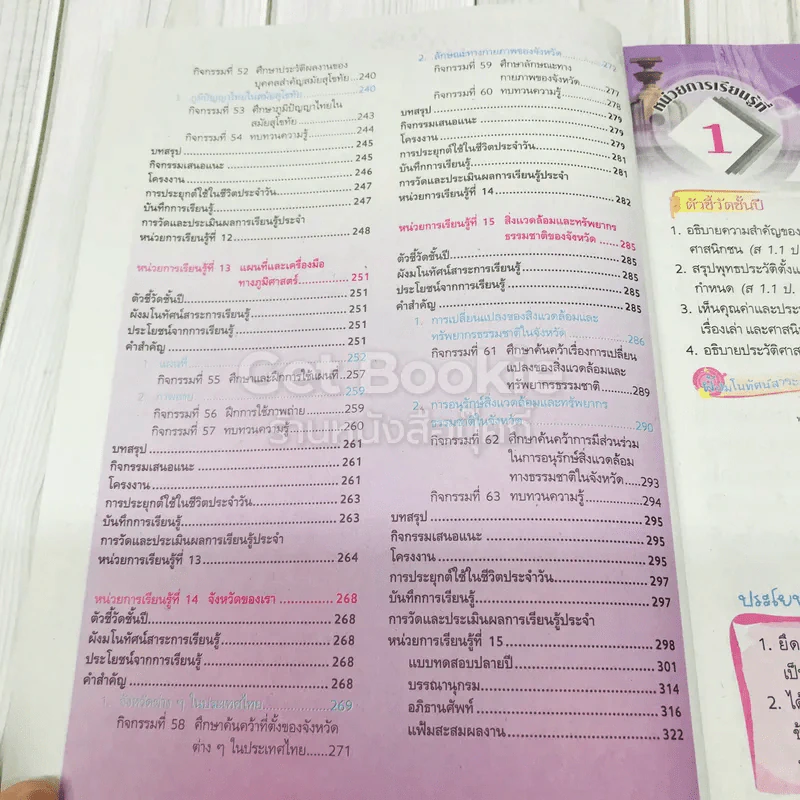 กิจกรรมที่ 52 ศึกษาประวัติผลงานของ
บุคคลสำคัญสมัยสุโขทัย.....240
1 ภูมิปัญญาไทยในสมัยสุโขทัย.....240
กิจกรรมที่ 53 ศึกษาภูมิปัญญาไทยใน
สมัยสุโขทัย.....243
กิจกรรมที่ 54 ทบทวนความรู้.....244
บทสรุป.....245
กิจกรรมเสนอแนะ.....245
โครงงาน.....246
การประยุกต์ใช้ในชีวิตประจำวัน.....247
บันทึกการเรียนรู้.....247
การวัดและประเมินผลการเรียนรู้ประจำ
หน่วยการเรียนรู้ที่ 12.....248
หน่วยการเรียนรู้ที่ 13 แผนที่และเครื่องมือ
ทางภูมิศาสตร์.....251
ตัวชี้วัดชั้นปี.....251
ผังมโนทัศน์สาระการเรียนรู้.....251
ประโยชน์จากการเรียนรู้.....251
คำสำคัญ.....251
1 แผนที่.....252
กิจกรรมที่ 55 ศึกษาและฝึกการใช้แผนที่...257
2 ภาพถ่าย.....259
กิจกรรมที่ 56 ฝึกการใช้ภาพถ่าย.....259
กิจกรรมที่ 57 ทบทวนความรู้.....260
บทสรุป.....261
กิจกรรมเสนอแนะ.....261
โครงงาน.....261
การประยุกต์ใช้ในชีวิตประจำวัน.....263
บันทึกการเรียนรู้.....263
การวัดและประเมินผลการเรียนรู้ประจำ
หน่วยการเรียนรู้ที่ 13.....264
หน่วยการเรียนรู้ที่ 14 จังหวัดของเรา.....268
ตัวชี้วัดชั้นปี.....268
ผังมโนทัศน์สาระการเรียนรู้.....268
ประโยชน์จากการเรียนรู้.....268
คำสำคัญ.....268
1. จังหวัดต่าง ๆ ในประเทศไทย.....269
กิจกรรมที่ 58 ศึกษาค้นคว้าที่ตั้งของจังหวัด
ต่าง ๆ ในประเทศไทย......271
2. ลักษณะทางกายภาพของจังหวัด.....272
กิจกรรมที่ 59 ศึกษาลักษณะทาง
กายภาพของจังหวัด.....277
กิจกรรมที่ 60 ทบทวนความรู้.....278
บทสรุป.....279
กิจกรรมเสนอแนะ.....279
โครงงาน.....279
การประยุกต์ใช้ในชีวิตประจำวัน.....281
บันทึกการเรียนรู้.....281
การวัดและประเมินผลการเรียนรู้ประจำ
หน่วยการเรียนรู้ที่ 14.....282
หน่วยการเรียนรู้ที่ 15 สิ่งแวดล้อมและทรัพยากร
ธรรมชาติของจังหวัด.....285
ตัวชี้วัดชั้นปี.....285
ผังมโนทัศน์สาระการเรียนรู้.....285
ประโยชน์จากการเรียนรู้.....285
คำสำคัญ.....285
1. การเปลี่ยนแปลงของสิ่งแวดล้อมและ
ทรัพยากรธรรมชาติในจังหวัด.....286
กิจกรรมที่ 61 ศึกษาค้นคว้าเรื่องการเปลี่ยน
แปลงของสิ่งแวดล้อมและ
ทรัพยากรธรรมชาติ.....289
2. การอนุรักษ์สิ่งแวดล้อมและทรัพยากร
ธรรมชาติในจังหวัด.....290
กิจกรรมที่ 62 ศึกษาค้นคว้าการมีส่วนร่วม
ในการอนุรักษ์สิ่งแวดล้อม
ทางธรรมชาติในจังหวัด.....293
กิจกรรมที่ 63 ทบทวนความรู้.....294
บทสรุป.....295
กิจกรรมเสนอแนะ.....295
โครงงาน.....295
การประยุกต์ใช้ในชีวิตประจำวัน.....297
บันทึกการเรียนรู้.....297
การวัดและประเมินผลการเรียนรู้ประจำ
หน่วยการเรียนรู้ที่ 15.....298
แบบทดสอบปลายปี.....301
บรรณานุกรม.....314
อภิธานศัพท์.....316
แฟ้มสะสมผลงาน.....322
หน่วยการเรียนรู้ที่
1
ตัวชี้วัดชั้นปี
1. อธิบายความสำคัญของ
ศาสนิกชน (ส 1.1 ป
2. สรุปพุทธประวัติตั้งแ
กำหนด (ส 1.1 ป.
3. เห็นคุณค่าและประ
เรื่องเล่า และศาสนิ
4. อธิบายประวัติศาส
ผังมโนทัศน์สาระ
ประโยช
1. ยึด
เป็
2. ได้
Get Book
ร้านหนังสือ